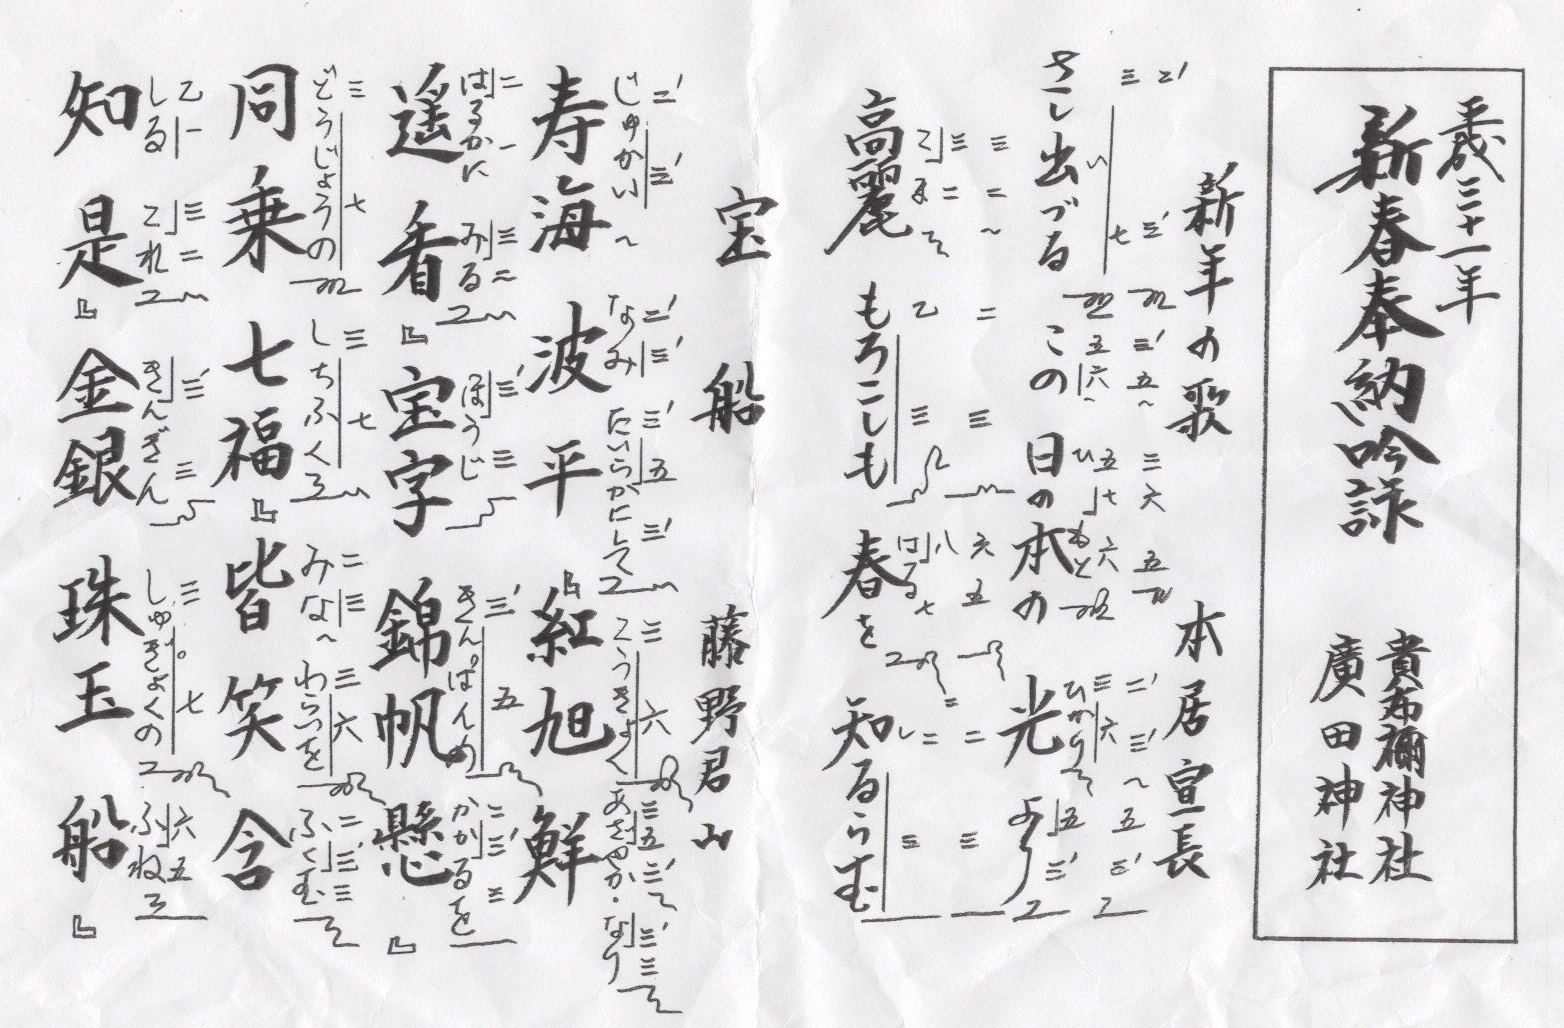 平成三十一年
新春奉納吟詠
貴布禰神社
廣田神社
新年の歌 本居宣長
さし出づる この日の本の 光より
高麗もろこしも 春を知るらむ
宝船 藤野君山
寿海 波平 『紅旭 鮮
じゅかい なみ たいらかにして こうきょく あざやか・なり
遥看』宝字 錦帆 懸』
はるかに みる ほうじ きんぱんの かかるを
同乗 七福『皆笑 含
どうじょうの しちふく みな わらいを ふくむ
知是』金銀 珠玉 船』
しる これ きんぎん しゅぎょくの ふね